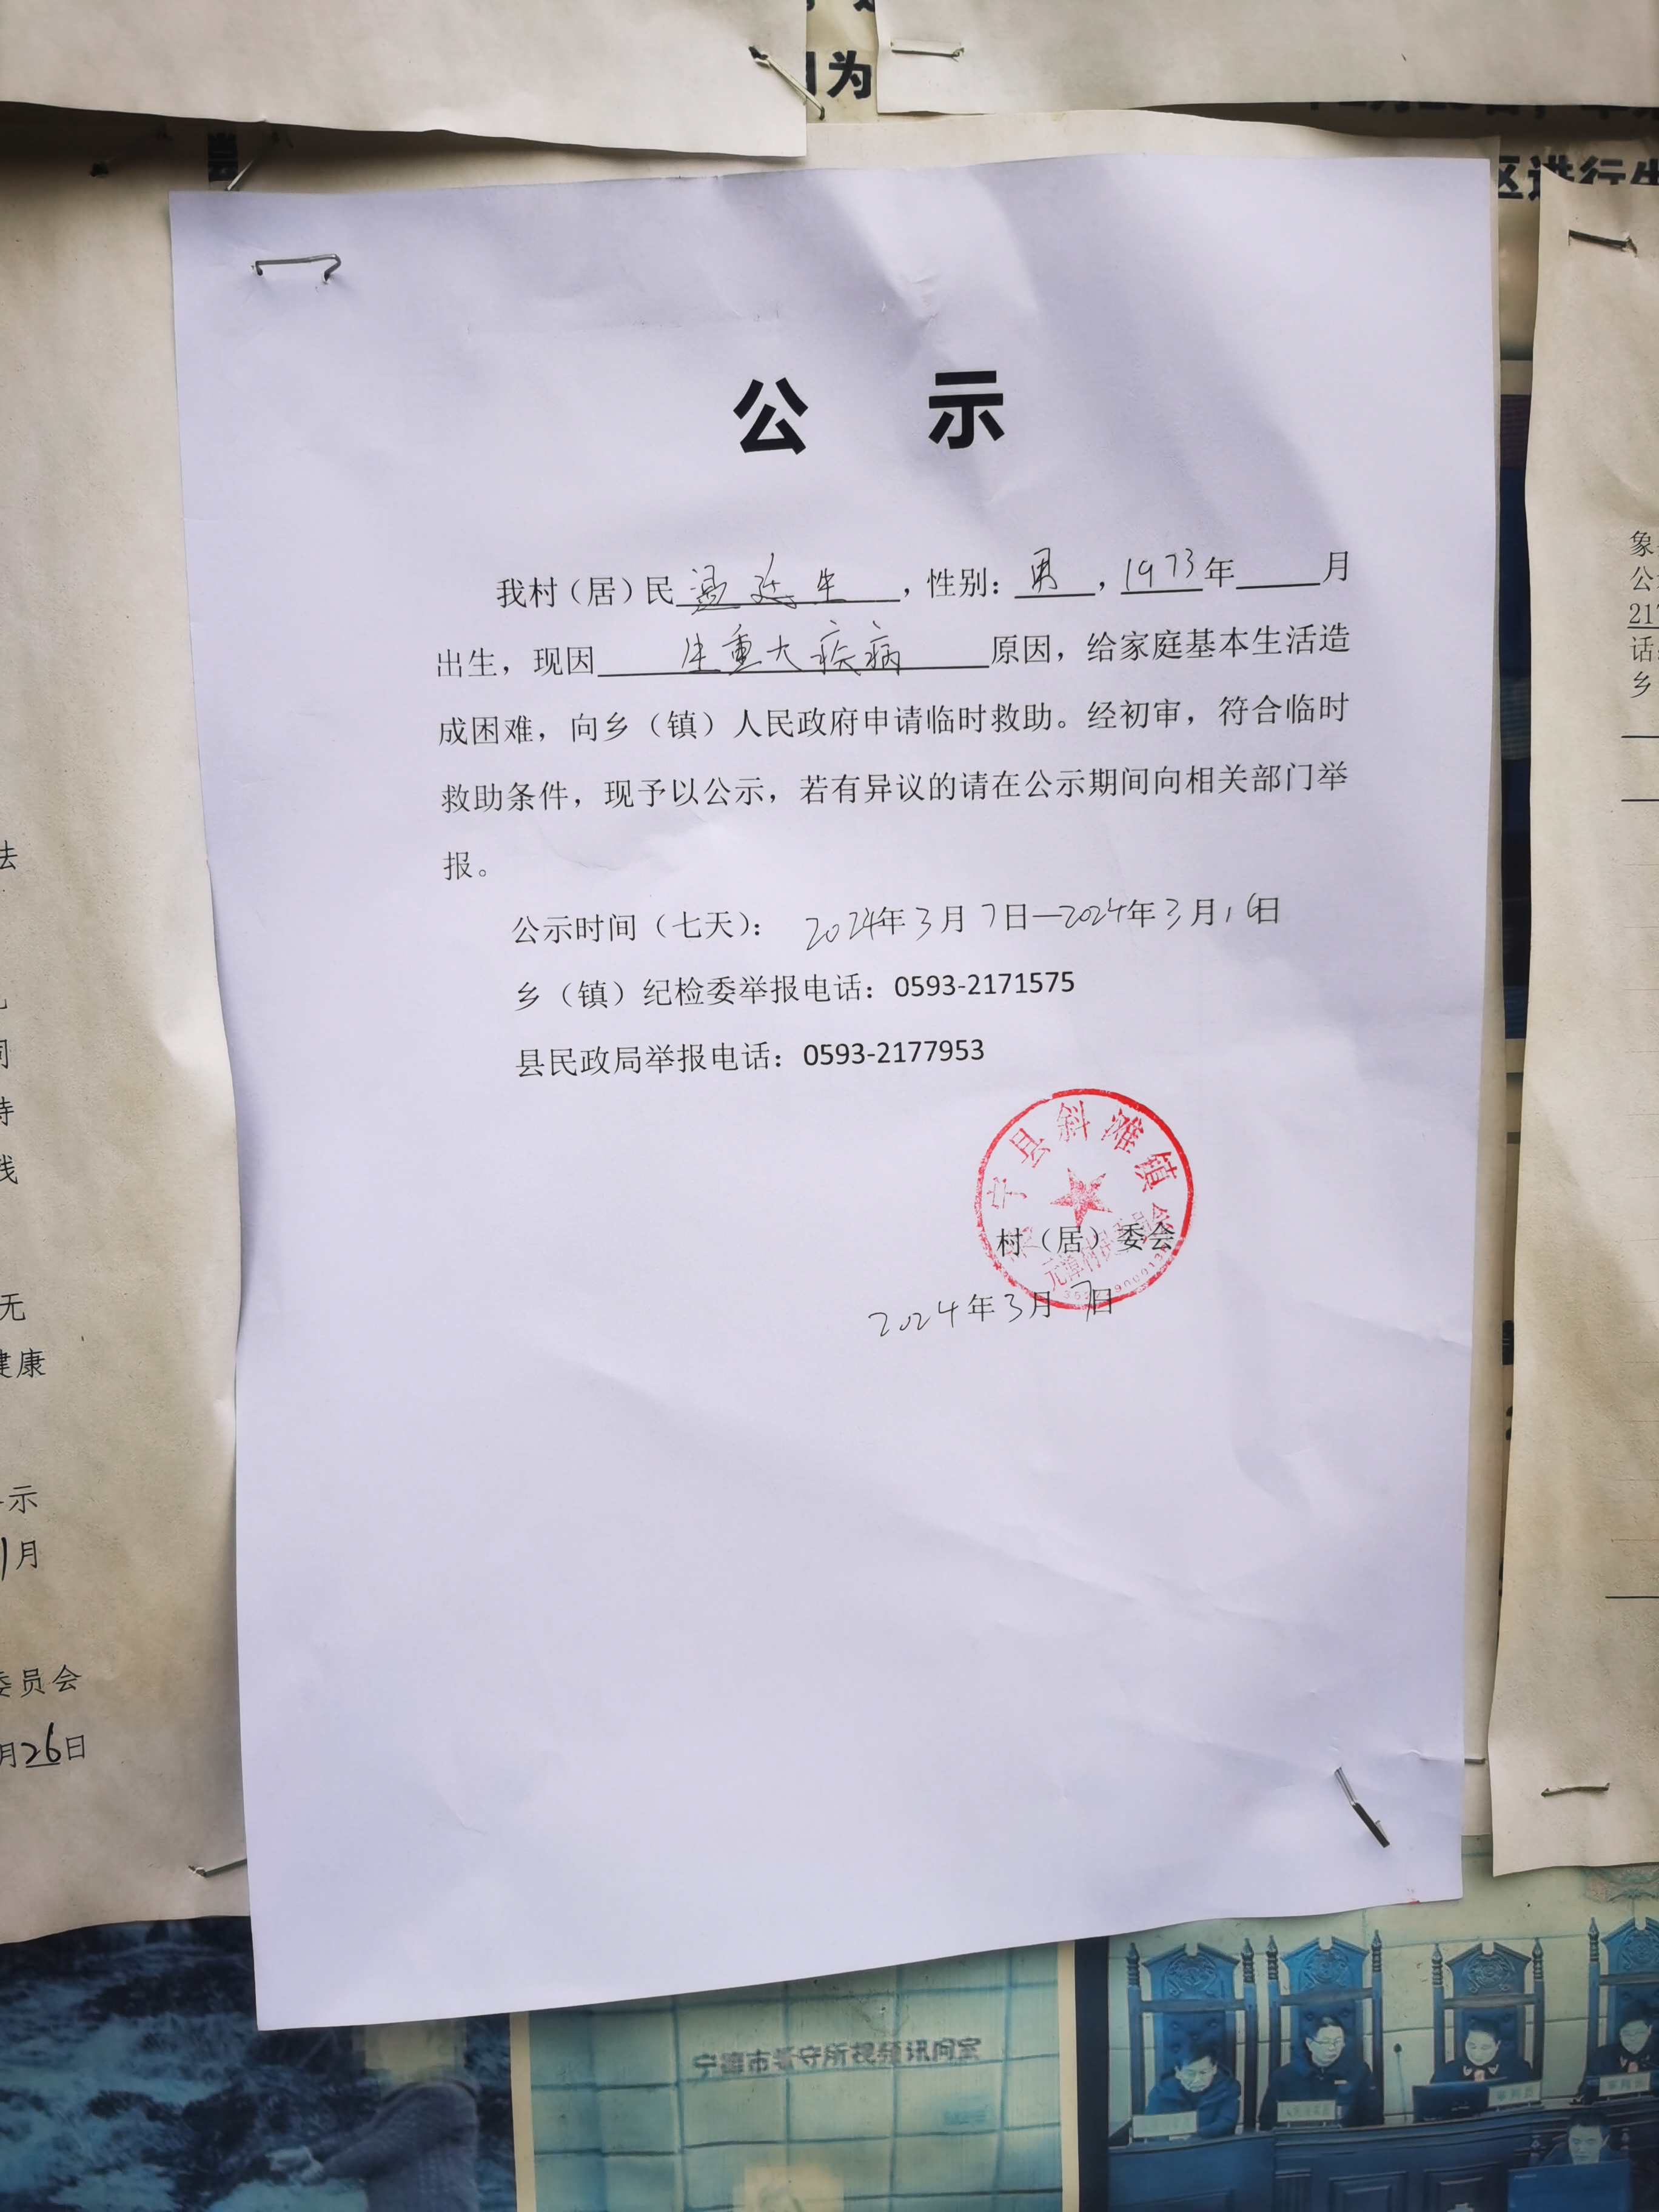 因为
区进行生
公 示
我村（居）民温廷生，性别：男，1973年 月
出生，现因 生重大疾病 原因，给家庭基本生活造
成困难，向乡（镇）人民政府申请临时救助。经初审，符合临时
救助条件，现予以公示，若有异议的请在公示期间向相关部门举
报。
公示时间（七天）： 2024年3月7日—2024年3月16日
乡（镇）纪检委举报电话：0593-2171575
县民政局举报电话：0593-2177953
寿宁县斜滩镇
元潭村民委员会
村（居）委会
2024年3月7日
法
持
无
健康
示
1月
委员会
月26日
象
公
217
话
乡
宁德市看守所视频讯问室